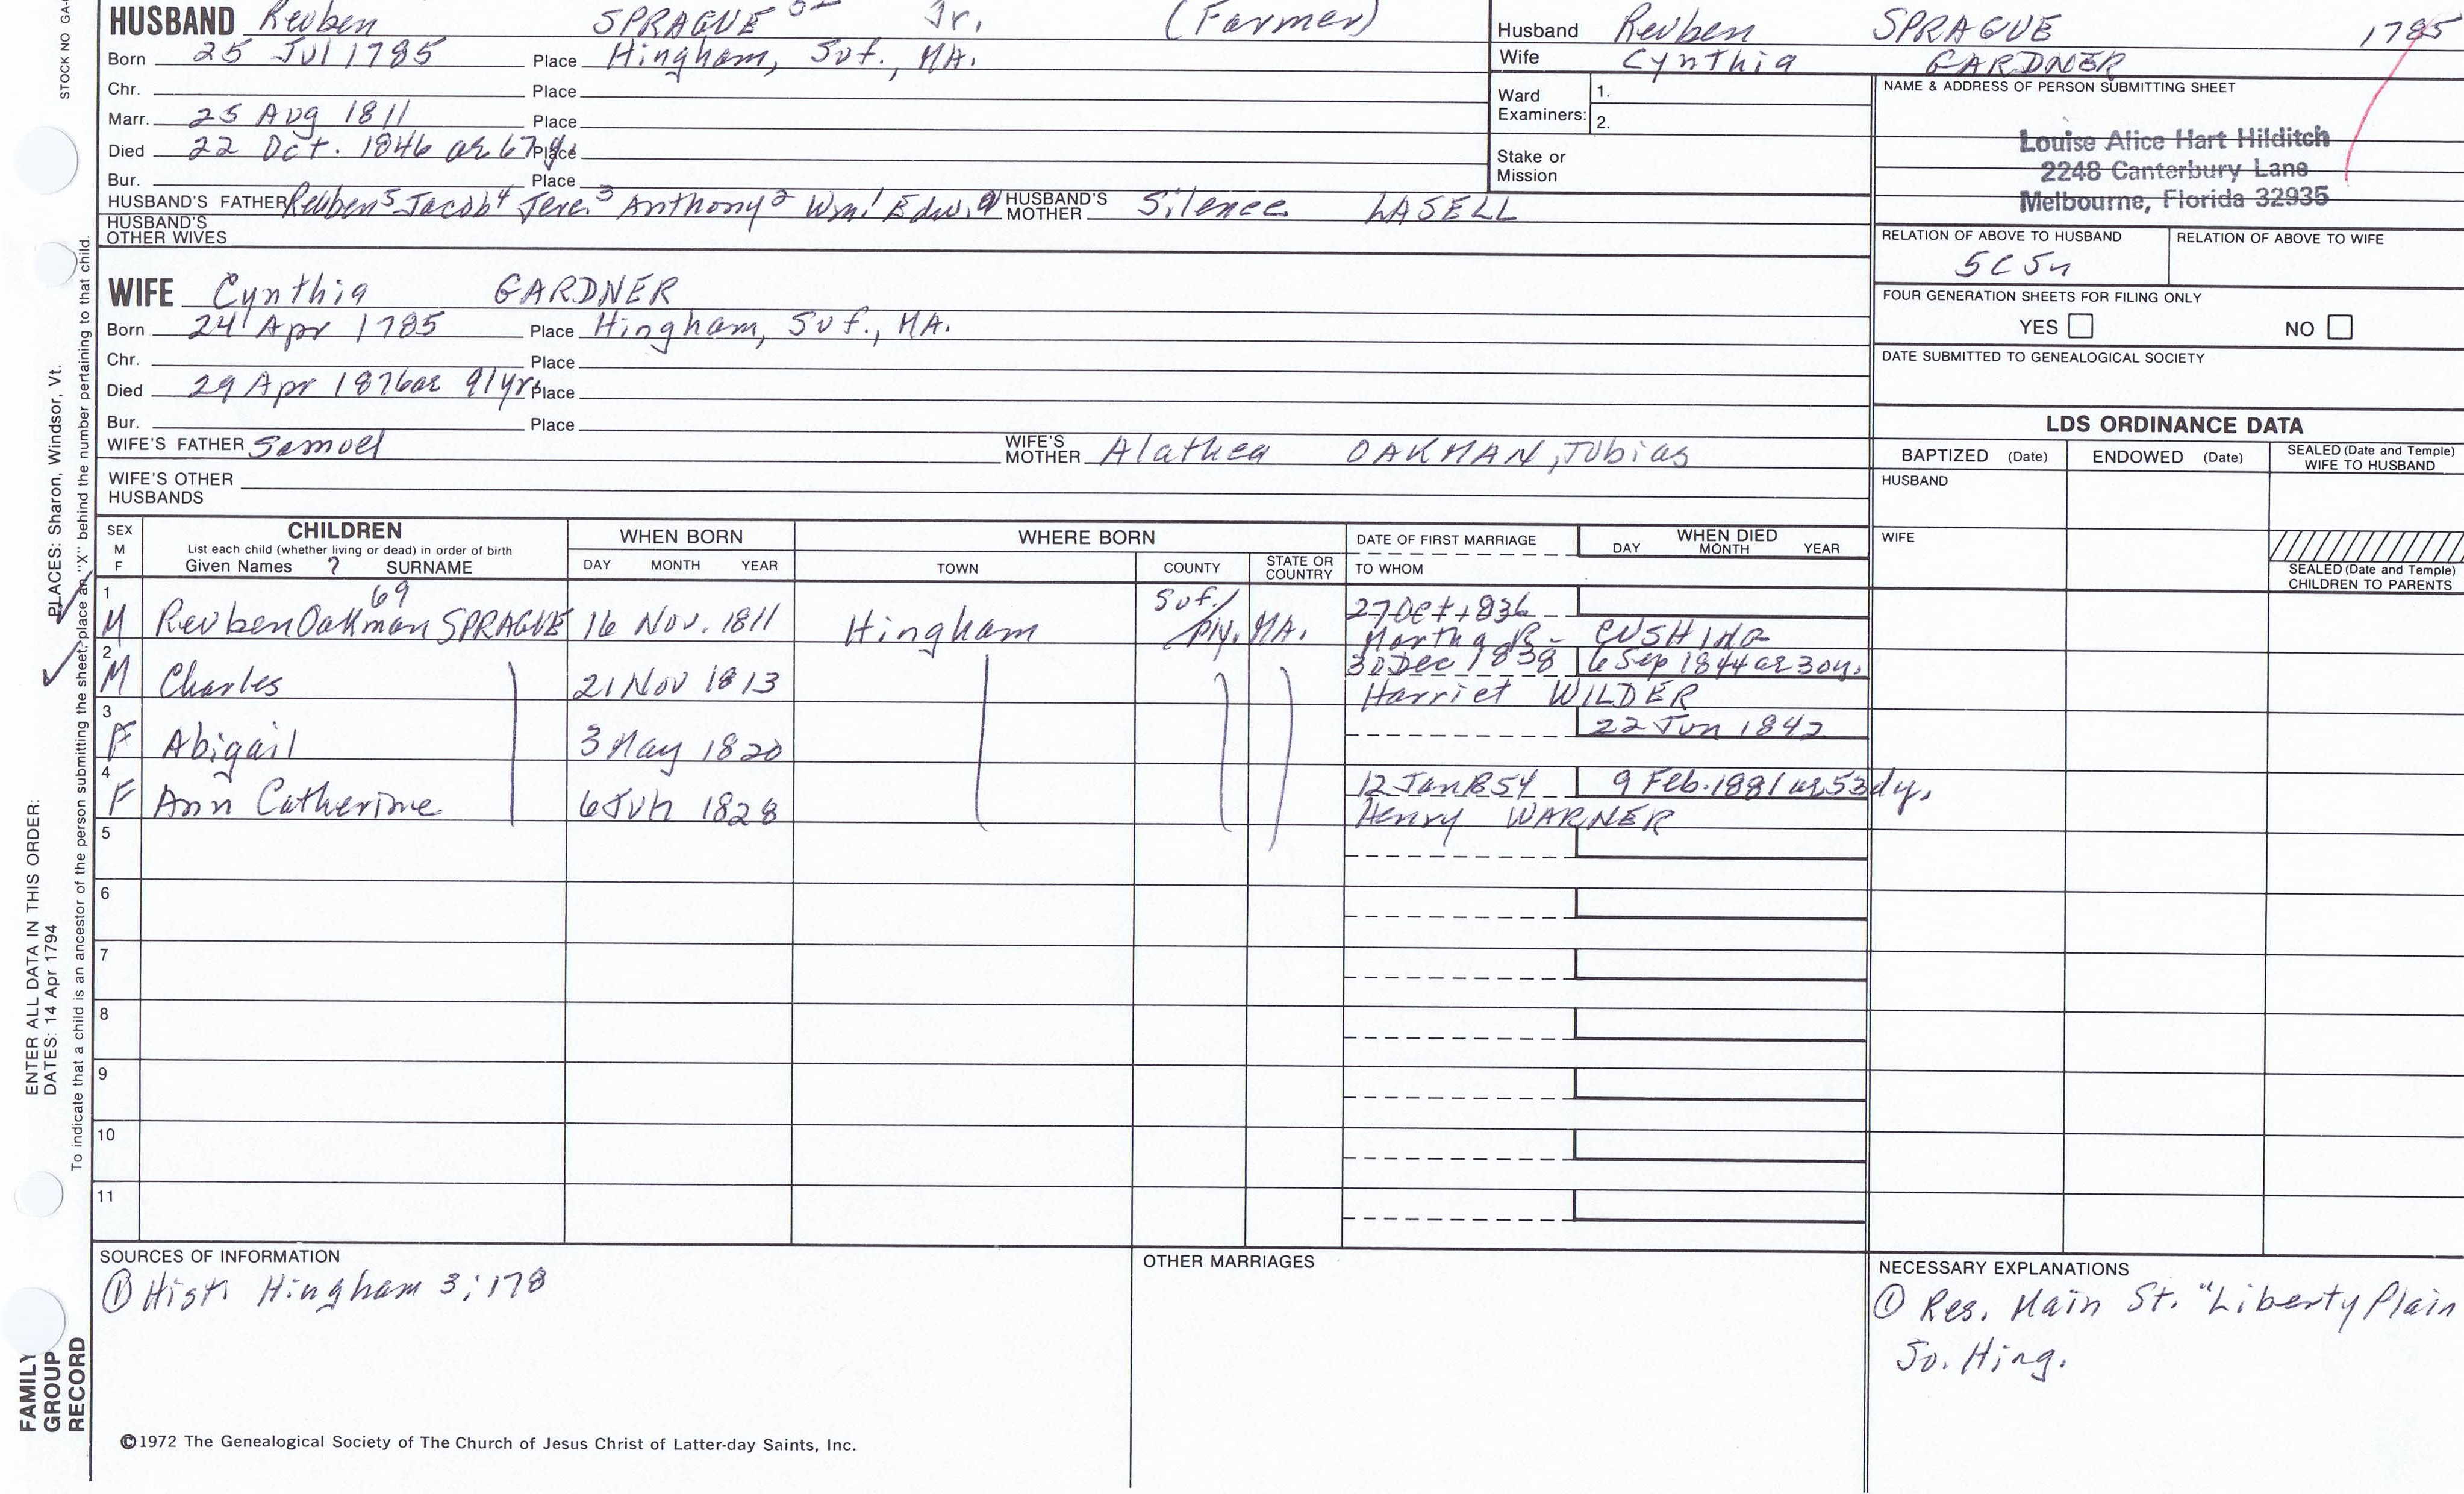 STOCK NO GA-
HUSBAND Reuben SPRAGUE Jr. (Farmer)
Born 25 Jul 1785 Place Hingham, Suf., MA.
Chr. Place
Marr. 25 Aug 1811 Place
Died 22 Oct. 1846 ae 67 y. Place
Bur. Place
HUSBAND'S FATHER Reuben⁵ Jacob⁴ Jere.³ Anthony² Wm¹ Edw.ᵃ HUSBAND'S MOTHER Silence LASELL
HUSBAND'S OTHER WIVES
Husband Reuben SPRAGUE 1785
Wife Cynthia GARDNER
Ward Examiners: 1.
2.
Stake or Mission
NAME & ADDRESS OF PERSON SUBMITTING SHEET
Louise Alice Hart Hilditch
2248 Canterbury Lane
Melbourne, Florida 32935
RELATION OF ABOVE TO HUSBAND RELATION OF ABOVE TO WIFE
5C5r
FOUR GENERATION SHEETS FOR FILING ONLY
YES NO
DATE SUBMITTED TO GENEALOGICAL SOCIETY
WIFE Cynthia GARDNER
Born 24 Apr 1785 Place Hingham, Suf., MA.
Chr. Place
Died 29 Apr 1876 ae 91 yr. Place
Bur. Place
WIFE'S FATHER Samuel WIFE'S MOTHER Alathea OAKMAN, Tobias
WIFE'S OTHER HUSBANDS
LDS ORDINANCE DATA
BAPTIZED (Date) ENDOWED (Date) SEALED (Date and Temple) WIFE TO HUSBAND
HUSBAND
WIFE
SEALED (Date and Temple) CHILDREN TO PARENTS
SEX M F
CHILDREN
List each child (whether living or dead) in order of birth
Given Names ? SURNAME
WHEN BORN
DAY MONTH YEAR
WHERE BORN
TOWN COUNTY STATE OR COUNTRY
DATE OF FIRST MARRIAGE
TO WHOM
WHEN DIED
DAY MONTH YEAR
1 M Reuben Oakman SPRAGUE 69 16 Nov. 1811 Hingham Suf./Ply. MA. 27 Oct 1836
Martha R. CUSHING
2 M Charles 21 Nov 1813 30 Dec 1838 6 Sep 1844 ae 30 y.
Harriet WILDER
3 F Abigail 3 May 1820 22 Jun 1842
4 F Ann Catherine 6 Jun 1828 12 Jan 1854 9 Feb. 1881 ae 53 dy.
Henry WARNER
5
6
7
8
9
10
11
SOURCES OF INFORMATION
① Hist. Hingham 3:178
OTHER MARRIAGES
NECESSARY EXPLANATIONS
① Res. Main St. "Liberty Plain
So. Hing.
©1972 The Genealogical Society of The Church of Jesus Christ of Latter-day Saints, Inc.
FAMILY GROUP RECORD
ENTER ALL DATA IN THIS ORDER:
DATES: 14 Apr 1794
PLACES: Sharon, Windsor, Vt.
To indicate that a child is an ancestor of the person submitting the sheet, place an "X" behind the number pertaining to that child.